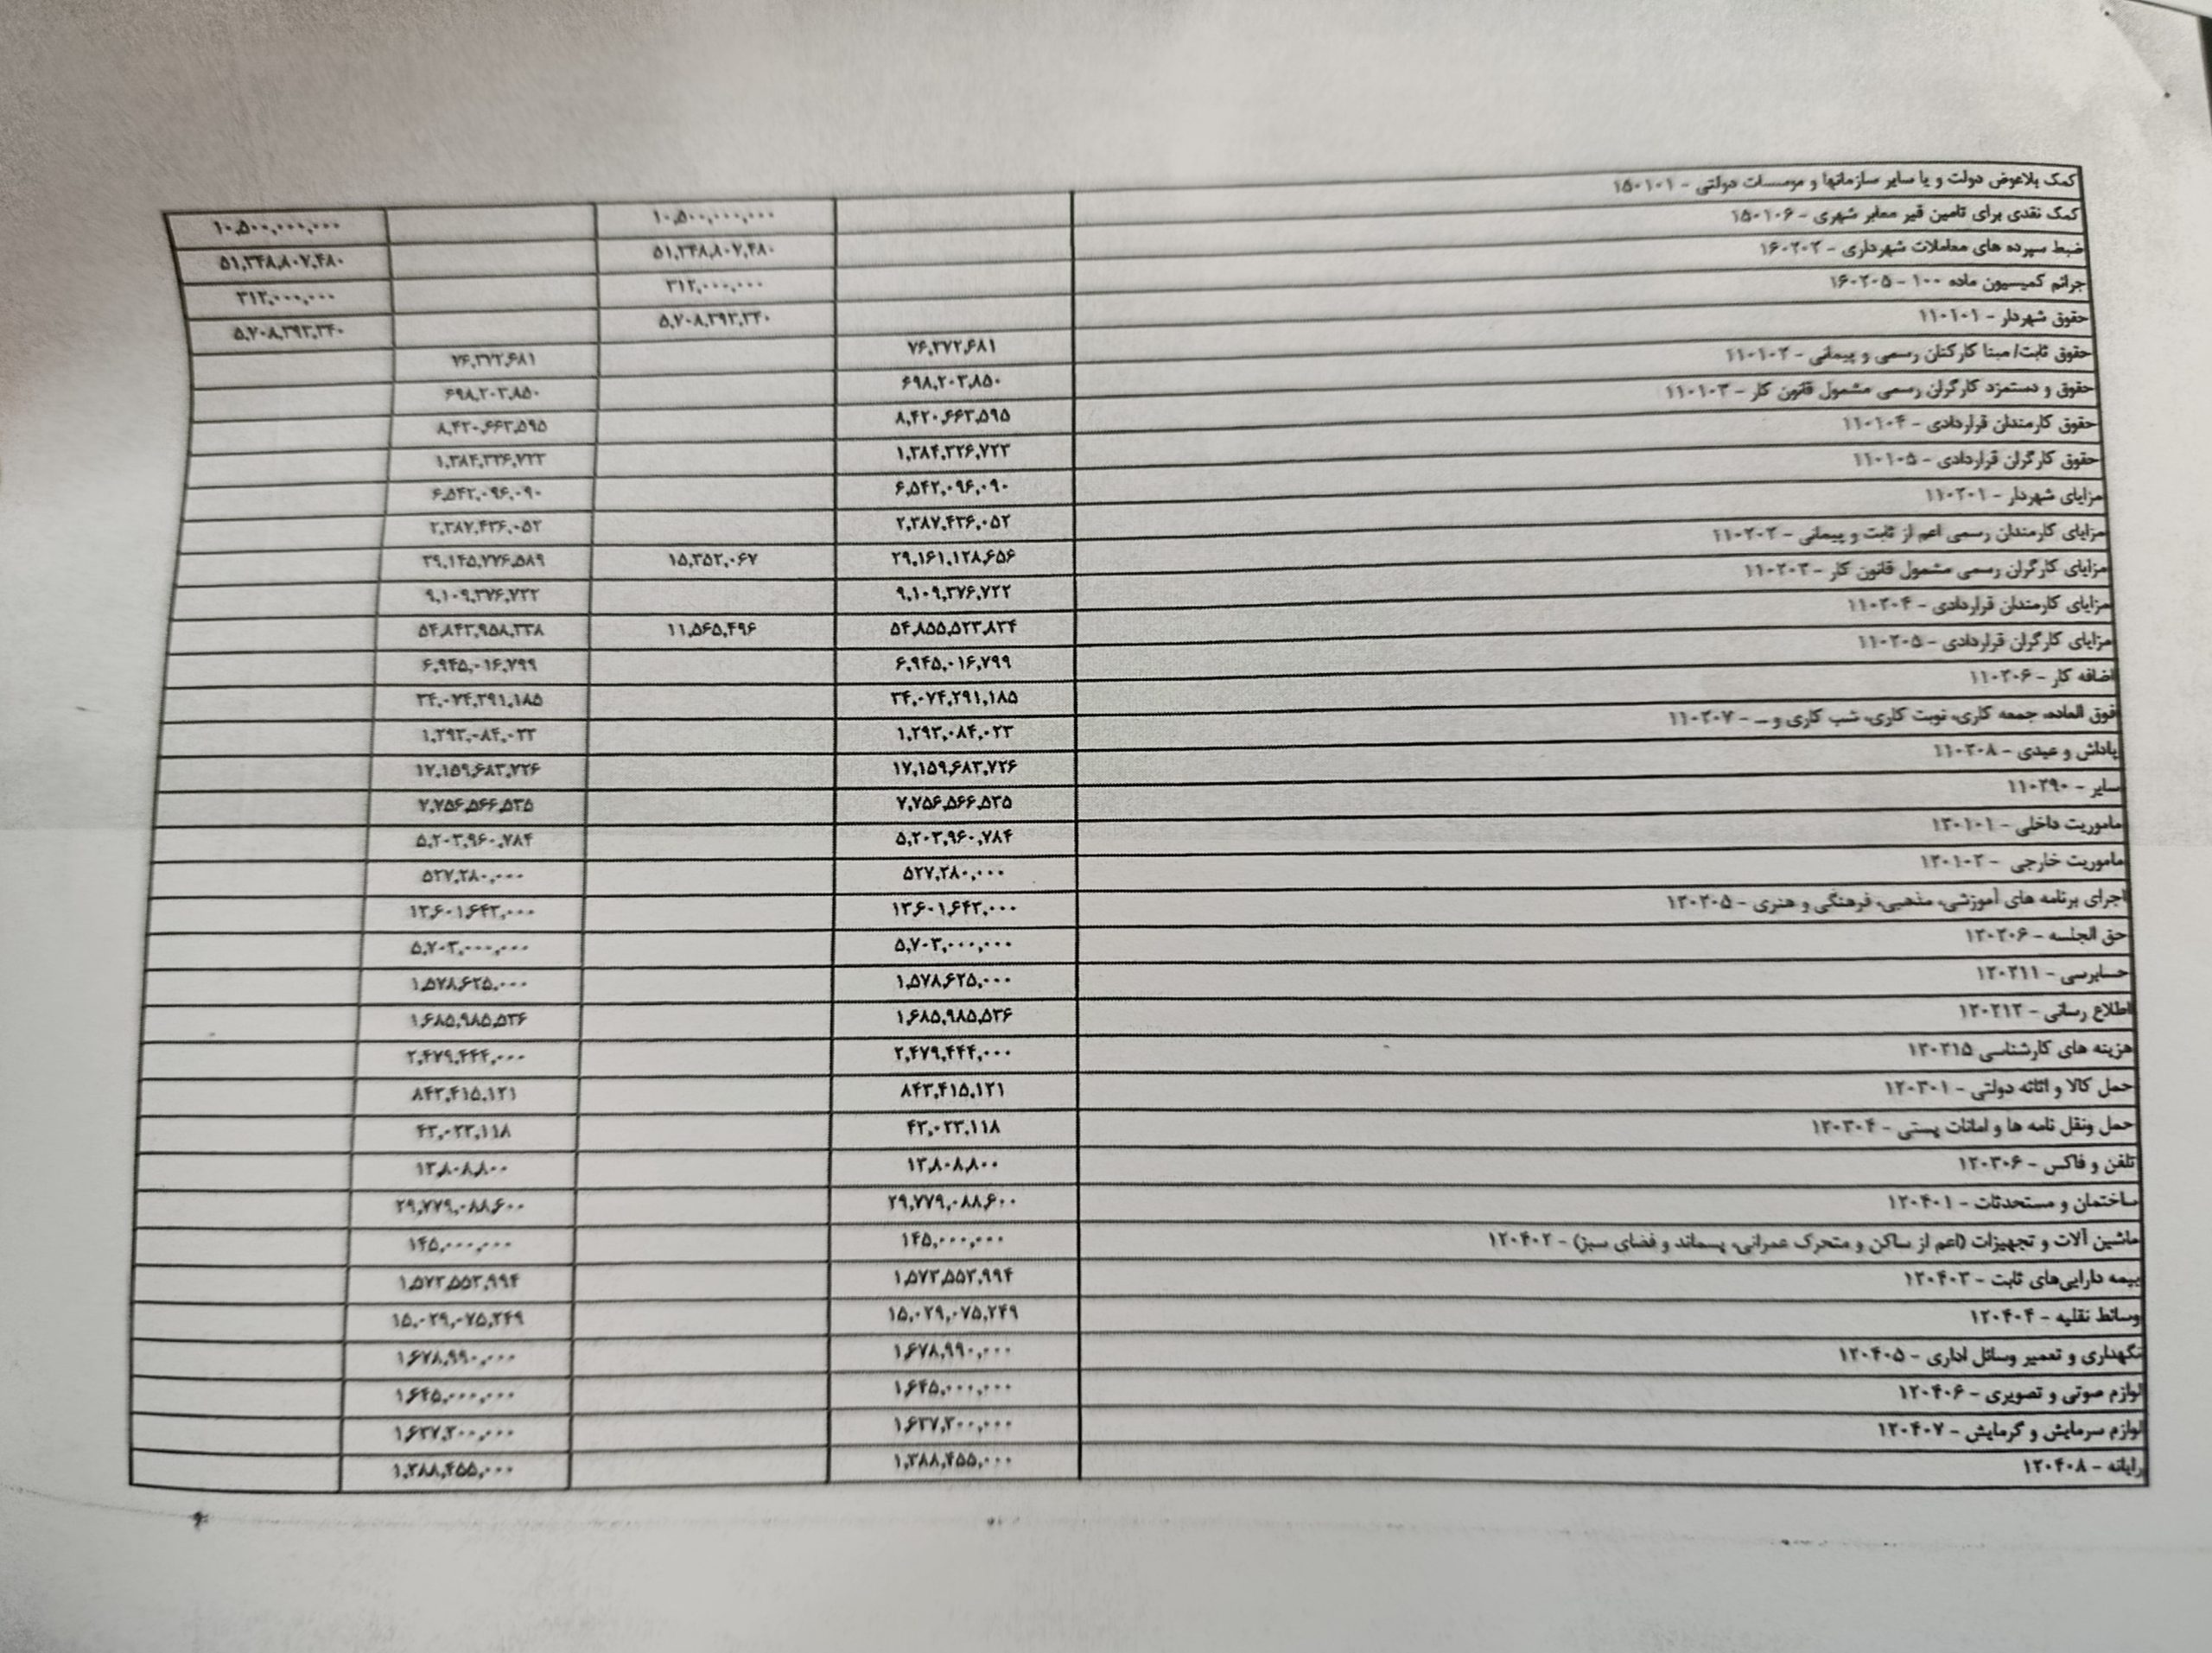 کمک بلاعوض دولت و یا سایر سازمانها و موسسات دولتی - ۱۵۰۱۰۱ ۱۰,۵۰۰,۰۰۰,۰۰۰ ۱۰,۵۰۰,۰۰۰,۰۰۰
کمک نقدی برای تامین قیر معابر شهری - ۱۵۰۱۰۶ ۵۱,۳۴۸,۸۰۷,۴۸۰ ۵۱,۳۴۸,۸۰۷,۴۸۰
ضبط سپرده های معاملات شهرداری - ۱۶۰۲۰۲ ۳۱۲,۰۰۰,۰۰۰ ۳۱۲,۰۰۰,۰۰۰
جرائم کمیسیون ماده ۱۰۰ - ۱۶۰۲۰۵ ۵,۷۰۸,۳۹۲,۳۴۰ ۵,۷۰۸,۳۹۲,۳۴۰
حقوق شهردار - ۱۱۰۱۰۱ ۷۶,۳۷۲,۶۸۱ ۷۶,۳۷۲,۶۸۱
حقوق ثابت/ مبنا کارکنان رسمی و پیمانی - ۱۱۰۱۰۲ ۶۹۸,۲۰۳,۸۵۰ ۶۹۸,۲۰۳,۸۵۰
حقوق و دستمزد کارگران رسمی مشمول قانون کار - ۱۱۰۱۰۳ ۸,۴۲۰,۶۶۳,۵۹۵ ۸,۴۲۰,۶۶۳,۵۹۵
حقوق کارمندان قراردادی - ۱۱۰۱۰۴ ۱,۳۸۴,۳۲۶,۷۲۳ ۱,۳۸۴,۳۲۶,۷۲۳
حقوق کارگران قراردادی - ۱۱۰۱۰۵ ۶,۵۴۲,۰۹۶,۰۹۰ ۶,۵۴۲,۰۹۶,۰۹۰
مزایای شهردار - ۱۱۰۲۰۱ ۲,۳۸۷,۴۳۶,۰۵۲ ۲,۳۸۷,۴۳۶,۰۵۲
مزایای کارمندان رسمی اعم از ثابت و پیمانی - ۱۱۰۲۰۲ ۲۹,۱۶۱,۱۲۸,۶۵۶ ۱۵,۳۵۲,۰۶۷ ۲۹,۱۴۵,۷۷۶,۵۸۹
مزایای کارگران رسمی مشمول قانون کار - ۱۱۰۲۰۳ ۹,۱۰۹,۳۷۶,۷۲۲ ۹,۱۰۹,۳۷۶,۷۲۲
مزایای کارمندان قراردادی - ۱۱۰۲۰۴ ۵۴,۸۵۵,۵۲۳,۸۳۴ ۱۱,۵۶۵,۴۹۶ ۵۴,۸۴۳,۹۵۸,۳۳۸
مزایای کارگران قراردادی - ۱۱۰۲۰۵ ۶,۹۴۵,۰۱۶,۷۹۹ ۶,۹۴۵,۰۱۶,۷۹۹
اضافه کار - ۱۱۰۲۰۶ ۳۴,۰۷۴,۲۹۱,۱۸۵ ۳۴,۰۷۴,۲۹۱,۱۸۵
فوق العاده، جمعه کاری، نوبت کاری، شب کاری و ... - ۱۱۰۲۰۷ ۱,۲۹۳,۰۸۴,۰۲۳ ۱,۲۹۳,۰۸۴,۰۲۳
پاداش و عیدی - ۱۱۰۲۰۸ ۱۷,۱۵۹,۶۸۳,۷۲۶ ۱۷,۱۵۹,۶۸۳,۷۲۶
سایر - ۱۱۰۲۹۰ ۷,۷۵۶,۵۶۶,۵۳۵ ۷,۷۵۶,۵۶۶,۵۳۵
ماموریت داخلی - ۱۲۰۱۰۱ ۵,۲۰۳,۹۶۰,۷۸۴ ۵,۲۰۳,۹۶۰,۷۸۴
ماموریت خارجی - ۱۲۰۱۰۲ ۵۲۷,۲۸۰,۰۰۰ ۵۲۷,۲۸۰,۰۰۰
اجرای برنامه های آموزشی، مذهبی، فرهنگی و هنری - ۱۲۰۲۰۵ ۱۳,۶۰۱,۶۴۳,۰۰۰ ۱۳,۶۰۱,۶۴۳,۰۰۰
حق الجلسه - ۱۲۰۲۰۶ ۵,۷۰۳,۰۰۰,۰۰۰ ۵,۷۰۳,۰۰۰,۰۰۰
حسابرسی - ۱۲۰۲۱۱ ۱,۵۷۸,۶۲۵,۰۰۰ ۱,۵۷۸,۶۲۵,۰۰۰
اطلاع رسانی - ۱۲۰۲۱۲ ۱,۶۸۵,۹۸۵,۵۳۶ ۱,۶۸۵,۹۸۵,۵۳۶
هزینه های کارشناسی ۱۲۰۲۱۵ ۲,۴۷۹,۴۴۴,۰۰۰ ۲,۴۷۹,۴۴۴,۰۰۰
حمل کالا و اثاثه دولتی - ۱۲۰۳۰۱ ۸۴۳,۴۱۵,۱۲۱ ۸۴۳,۴۱۵,۱۲۱
حمل ونقل نامه ها و امانات پستی - ۱۲۰۳۰۴ ۴۳,۰۲۳,۱۱۸ ۴۳,۰۲۳,۱۱۸
تلفن و فاکس - ۱۲۰۳۰۶ ۱۳,۸۰۸,۸۰۰ ۱۳,۸۰۸,۸۰۰
ساختمان و مستحدثات - ۱۲۰۴۰۱ ۲۹,۷۷۹,۰۸۸,۶۰۰ ۲۹,۷۷۹,۰۸۸,۶۰۰
ماشین آلات و تجهیزات (اعم از ساکن و متحرک عمرانی، پسماند و فضای سبز) - ۱۲۰۴۰۲ ۱۴۵,۰۰۰,۰۰۰ ۱۴۵,۰۰۰,۰۰۰
بیمه دارایی‌های ثابت - ۱۲۰۴۰۳ ۱,۵۷۳,۵۵۳,۹۹۴ ۱,۵۷۳,۵۵۳,۹۹۴
وسائط نقلیه - ۱۲۰۴۰۴ ۱۵,۰۲۹,۰۷۵,۲۴۹ ۱۵,۰۲۹,۰۷۵,۲۴۹
نگهداری و تعمیر وسائل اداری - ۱۲۰۴۰۵ ۱,۶۷۸,۹۹۰,۰۰۰ ۱,۶۷۸,۹۹۰,۰۰۰
لوازم صوتی و تصویری - ۱۲۰۴۰۶ ۱,۶۴۵,۰۰۰,۰۰۰ ۱,۶۴۵,۰۰۰,۰۰۰
لوازم سرمایش و گرمایش - ۱۲۰۴۰۷ ۱,۶۳۷,۲۰۰,۰۰۰ ۱,۶۳۷,۲۰۰,۰۰۰
رایانه - ۱۲۰۴۰۸ ۱,۳۸۸,۴۵۵,۰۰۰ ۱,۳۸۸,۴۵۵,۰۰۰